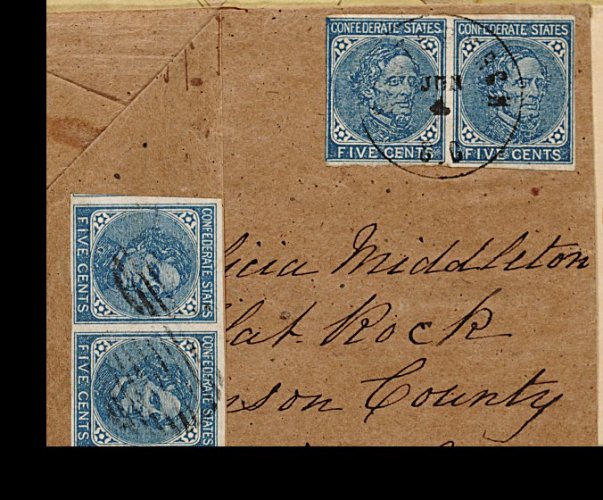 CONFEDERATE STATES CONFEDERATE STATES
JUN
4
FIVE CENTS FIVE CENTS
S.C
CONFEDERATE STATES
FIVE CENTS
CONFEDERATE STATES
FIVE CENTS
icia Middleton
lat Rock
son County